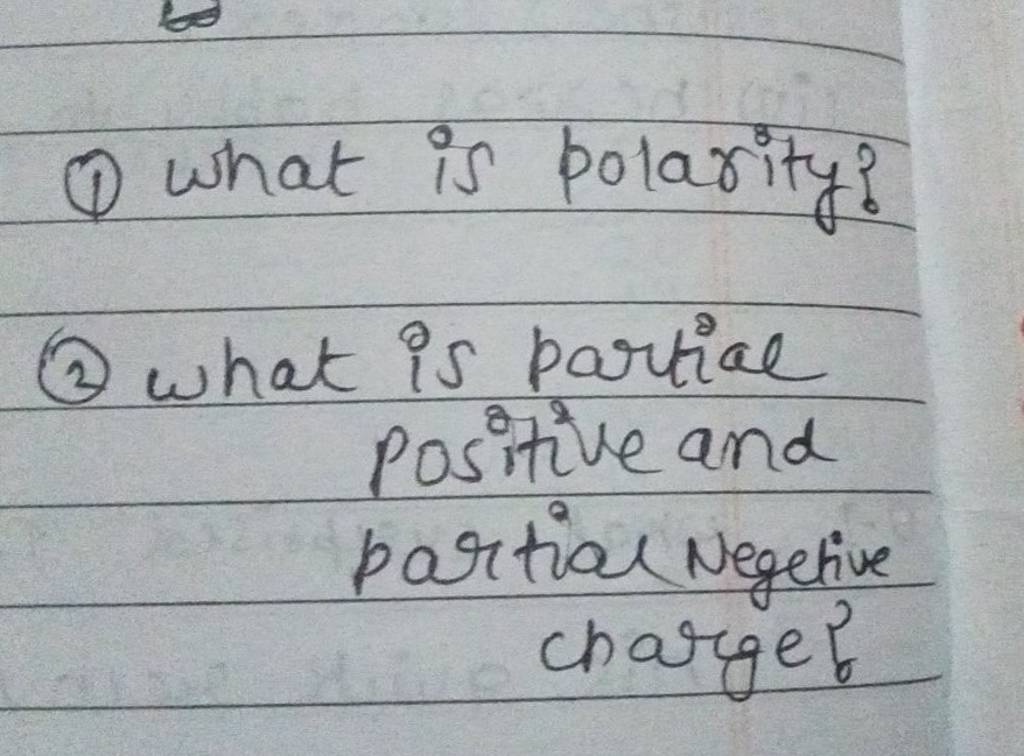 ① what is polarity?
② what is partial
positive and
partial Negetive
charge?